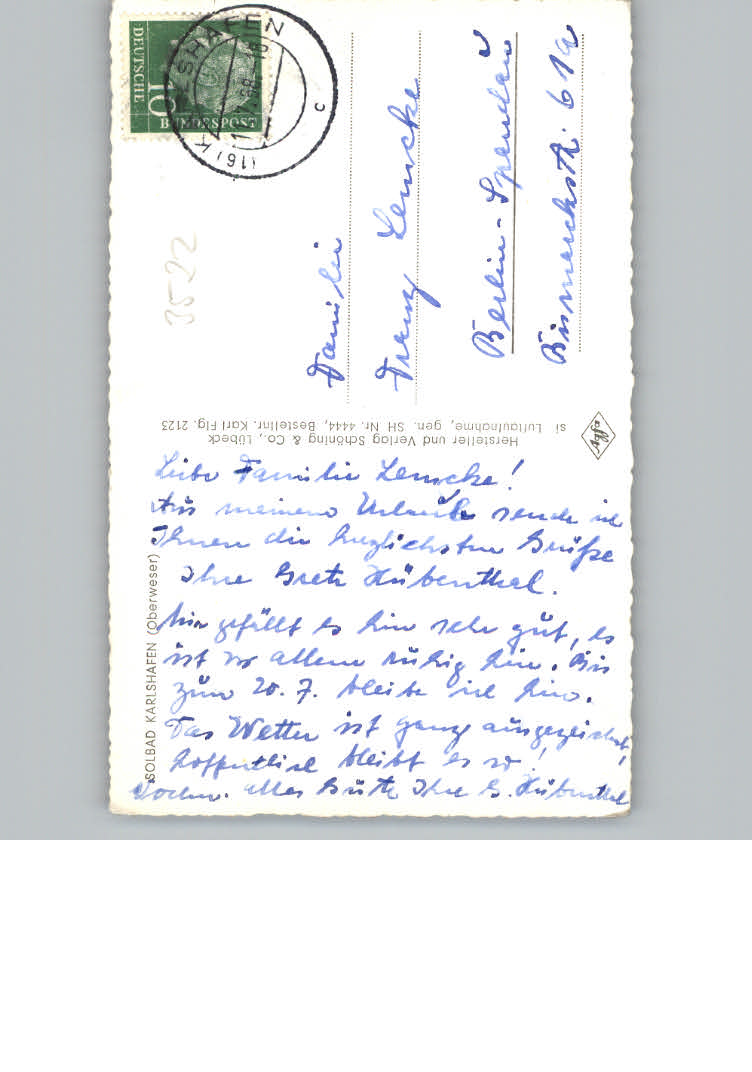 DEUTSCHE
10
BUNDESPOST
(16) KARLSHAFEN
c
3522
Familie
Franz Lemcke
Berlin-Spandau
Bismarckstr. 61a
Hersteller und Verlag Schöning & Co., Lübeck
si Luftaufnahme, gen. SH Nr. 4444, Bestellnr. Karl Flg. 2123
SOLBAD KARLSHAFEN (Oberweser)
Liebe Familie Lemcke!
Aus meinem Urlaub sende ich
Ihnen die herzlichsten Grüße
Ihre Grete Hübenthal.
Mir gefällt es hier sehr gut, es
ist vor allem ruhig hier. Bis
zum 20. 7. bleibe ich hier.
Das Wetter ist ganz ausgezeichnet,
hoffentlich bleibt es so!
alles Gute Ihre G. Hübenthal